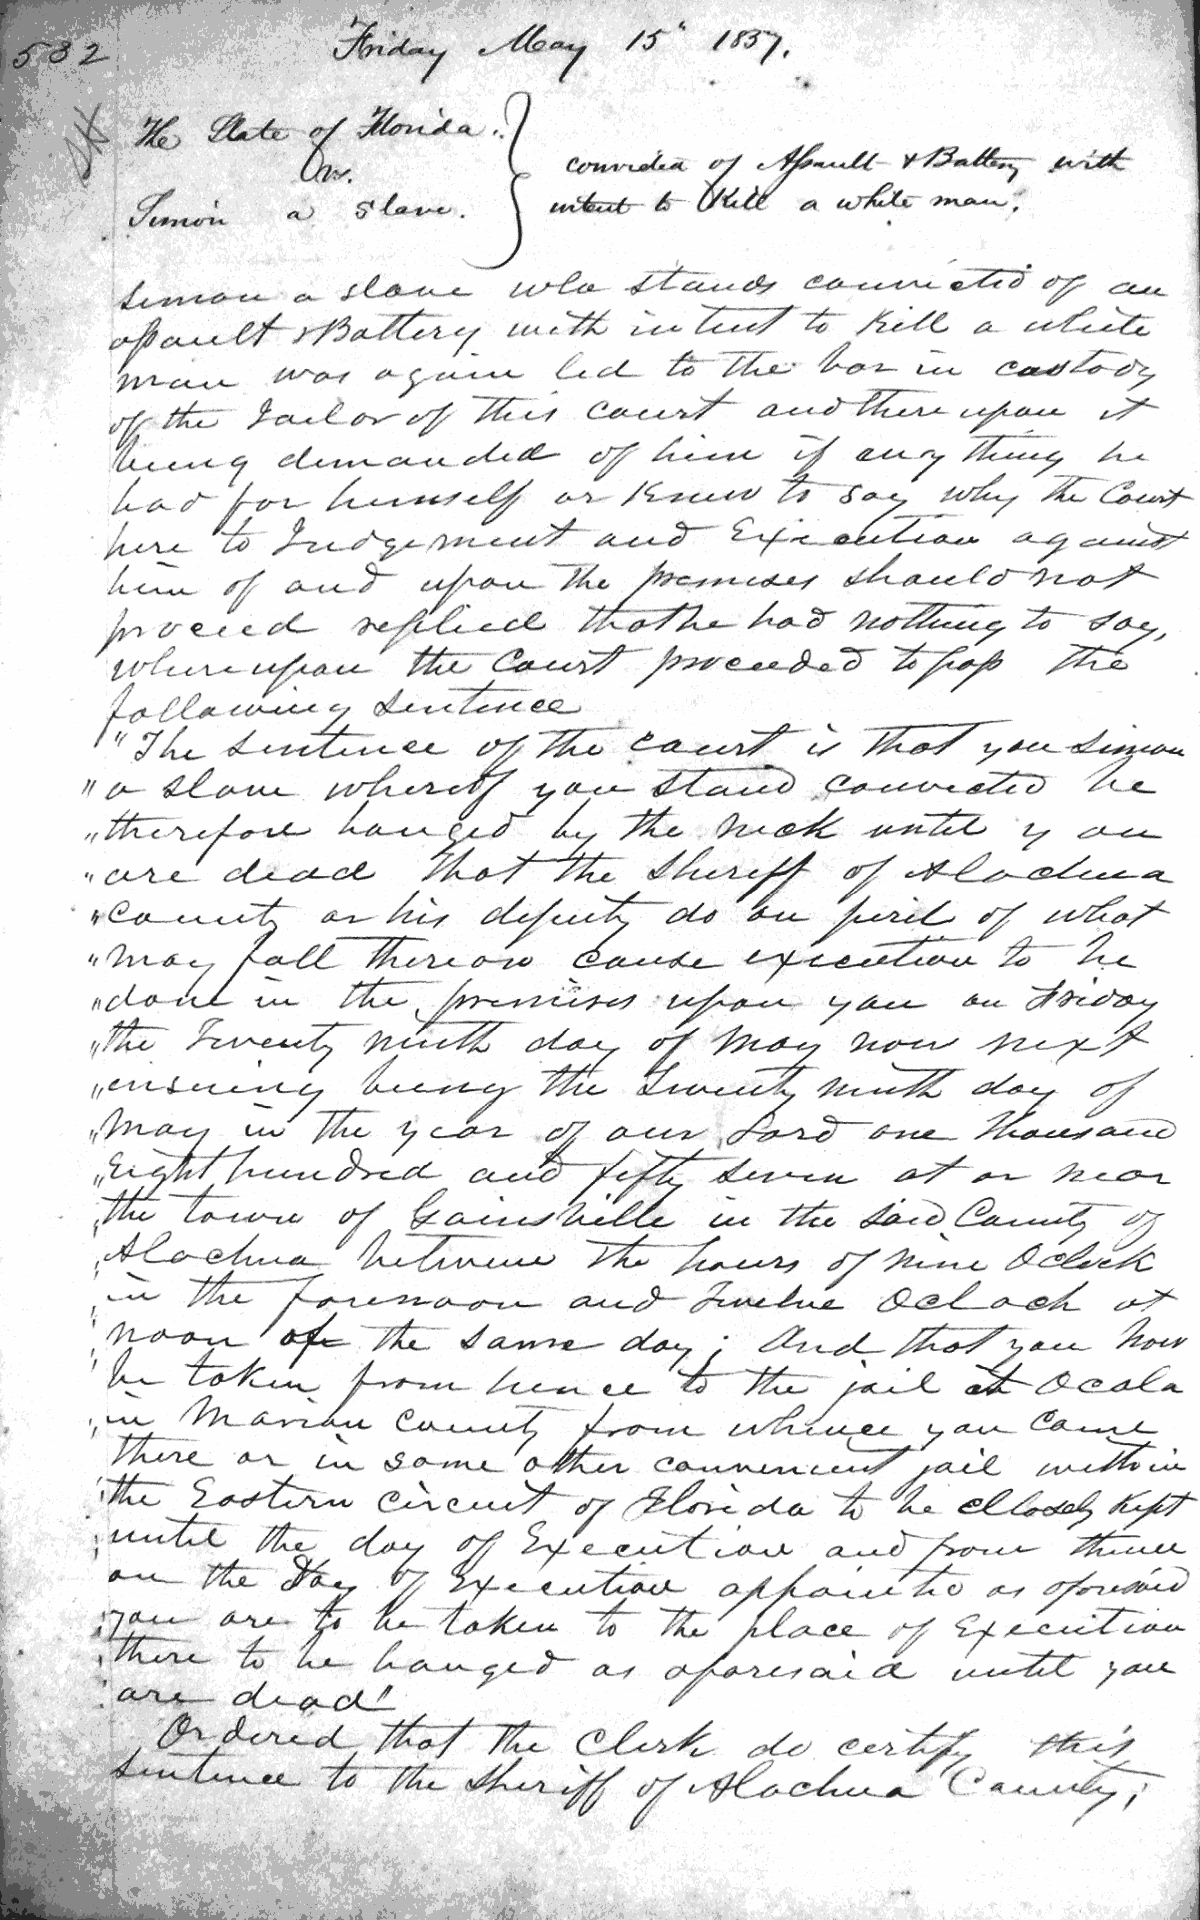 532
Friday May 15" 1857.
The State of Florida.
vs.
Simon a slave.
convicted of Assault & Battery with
intent to Kill a white man.
Simon a slave who stands convicted of an
assault & Battery with intent to Kill a white
man was again led to the bar in custody
of the Jailor of this court and there upon it
being demanded of him if any thing he
had for himself or Knew to say why the Court
here to Judgement and Execution against
him of and upon the premises should not
proceed replied that he had nothing to say,
whereupon the Court proceeded to pass the
following sentence
"The sentence of the court is that you Simon
"a slave whereof you stand convicted be
"therefore hanged by the neck until you
"are dead That the Sheriff of Alachua
"County or his deputy do on peril of what
"may fall thereon cause execution to be
"done in the premises upon you on Friday
"the Twenty ninth day of May now next
"ensuing being the Twenty ninth day of
"May in the year of our Lord one thousand
"Eight hundred and fifty seven at or near
"the town of Gainsville in the said County of
"Alachua between the hours of nine Oclock
"in the forenoon and Twelve Oclock at
"noon of the same day; And that you now
"be taken from hence to the jail at Ocala
"in Marion County from whence you came
there or in some other convenient jail within
"the Eastern circuit of Florida to be closely Kept
"until the day of Execution and from thence
on the Day of Execution appointed as aforesaid
"you are to be taken to the place of Execution
"there to be hanged as aforesaid until you
"are dead"
Ordered that the Clerk do certify this
sentence to the Sheriff of Alachua County;